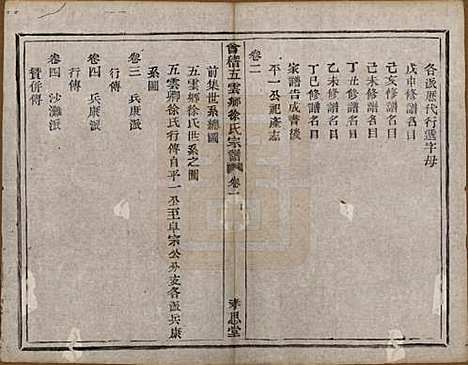 各派歷代行選字母
戊申修譜名目
己亥修譜名目
己未修譜名目
丁丑修譜名目
乙未修譜名目
丁巳修譜名目
家譜告成書後
平一公祀產志
卷二
會稽五雲鄉徐氏宗譜
卷一
孝思堂
前集世系總圖
五雲鄉徐氏世系之圖
五雲鄉徐氏行傳自平一公至阜宗公分支各派兵康
系圖
卷三 兵康派
行傳
卷四 兵康派
行傳
卷四 沙灘派
贅併傳